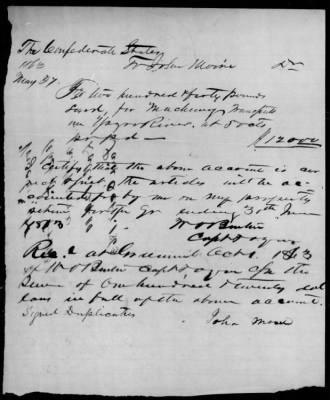 The Confederate States
1863 To John Moore Dr
May 27
To two hundred & forty Pounds
Lard, for Machinery Transports
on Yazoo River, at 50 cts
per pd $120.00
I Certify that the above account is cor
rect & just the articles will be ac
counted for by me on my property
return for the Qr ending 30th June
1863
Capt &
Recd at Greenwood 1863
of Capt & the
sum of One hundred & twenty dol
lars in full of the above account.
Signed Duplicates
John Moore